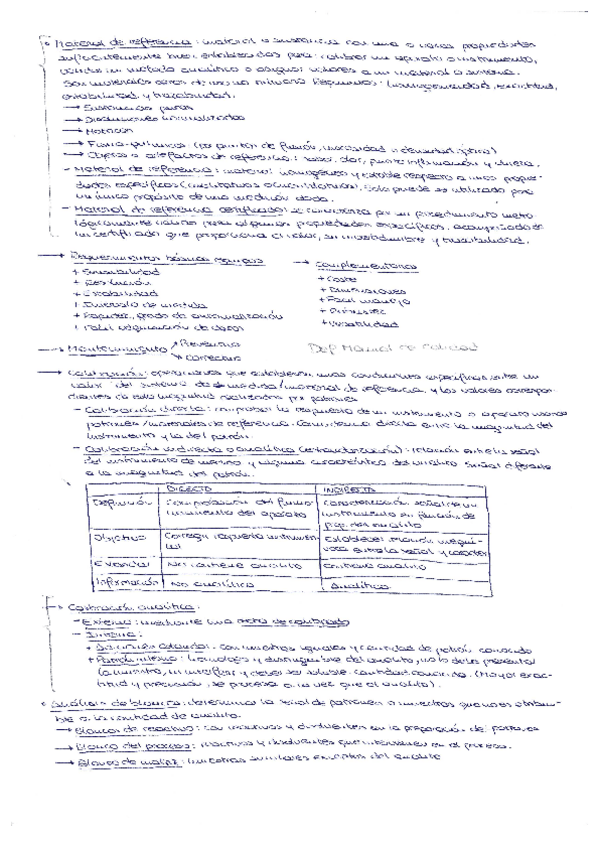 • Material de referencia: material o sustancia con una o varias propiedades
suficientemente bien establecidas para: calibrar un aparato o instrumento,
validar un método analítico o asignar valores a un material o sistema.
Son materiales caros de uso no rutinario. Requisitos: (homogeneidad, exactitud,
estabilidad, y trazabilidad.
→ Sustancias puras
→ Disoluciones normalizadas
→ Matrices
→ Físico-químicos: (por puntos de fusión, viscosidad o densidad óptica)
→ Objetos o artefactos de referencia: sabor, olor, punto inflamación y dureza.
- Material de referencia: material homogéneo y estable respecto a unas propie-
dades específicas (cuantitativas o cualitativas). Solo puede ser utilizado para
un único propósito de una medición dada.
- Material de referencia certificado: se caracteriza por un procedimiento metro-
lógicamente válido para algunas propiedades específicas, acompañado de
un certificado que proporciona el valor, su incertidumbre y trazabilidad.
→ Requerimientos básicos equipos → Complementarios
+ Sensibilidad + Coste
+ Resolución + Dimensiones
+ Estabilidad + Fácil manejo
+ Intervalo de medida
+ Rapidez, grado de automatización
+ Fácil adquisición de datos + Versatilidad
→ Mantenimiento Preventivo
Correctivo
Dep Manual de Calidad
→ Calibración: operaciones que establecen, unas condiciones específicas, entre un
valor del sistema de medida/material de referencia, y los valores correspon-
dientes de esta magnitud realizados por patrones
- Calibración directa: comprobar la respuesta de un instrumento o aparato usando
patrones/materiales de referencia. Coincidencia directa entre la magnitud del
instrumento y la del patrón.
- Calibración indirecta o analítica (estandarización): relación entre la señal
del instrumento de medida y alguna característica del analito. Señal diferente
a la magnitud del patrón.
DIRECTO INDIRECTA
Definición Comprobación del funcio- Caracterización señal de un
namiento del aparato instrumento en función de
prop. del analito
Objetivo Corregir respuesta instrumen- Establecer relación inequí-
tal voca entre la señal y carácter
Estándar No contiene analito Contiene analito
Información No analítica Analítica
→ Calibración analítica.
- Externa: mediante una recta de calibrado
- Interna:
+ Adición estándar: con muestras iguales y cantidad de patrón conocida
+ Patrón interno: homólogo y distinguible del analito, no lo debe presentar
la muestra, no interferir y debe ser soluble. Cantidad conocida. (Mayor exac-
titud y precisión, se procesa a la vez que el analito).
• Análisis de blancos: determina la señal de patrones o muestras que no es atribui-
ble a la cantidad de analito.
→ Blancos de reactivos: con reactivos y disolventes en la preparación del patrones
→ Blanco del proceso: reactivos y disolventes que intervienen en el proceso.
→ Blanco de matriz: muestras similares exentas del analito